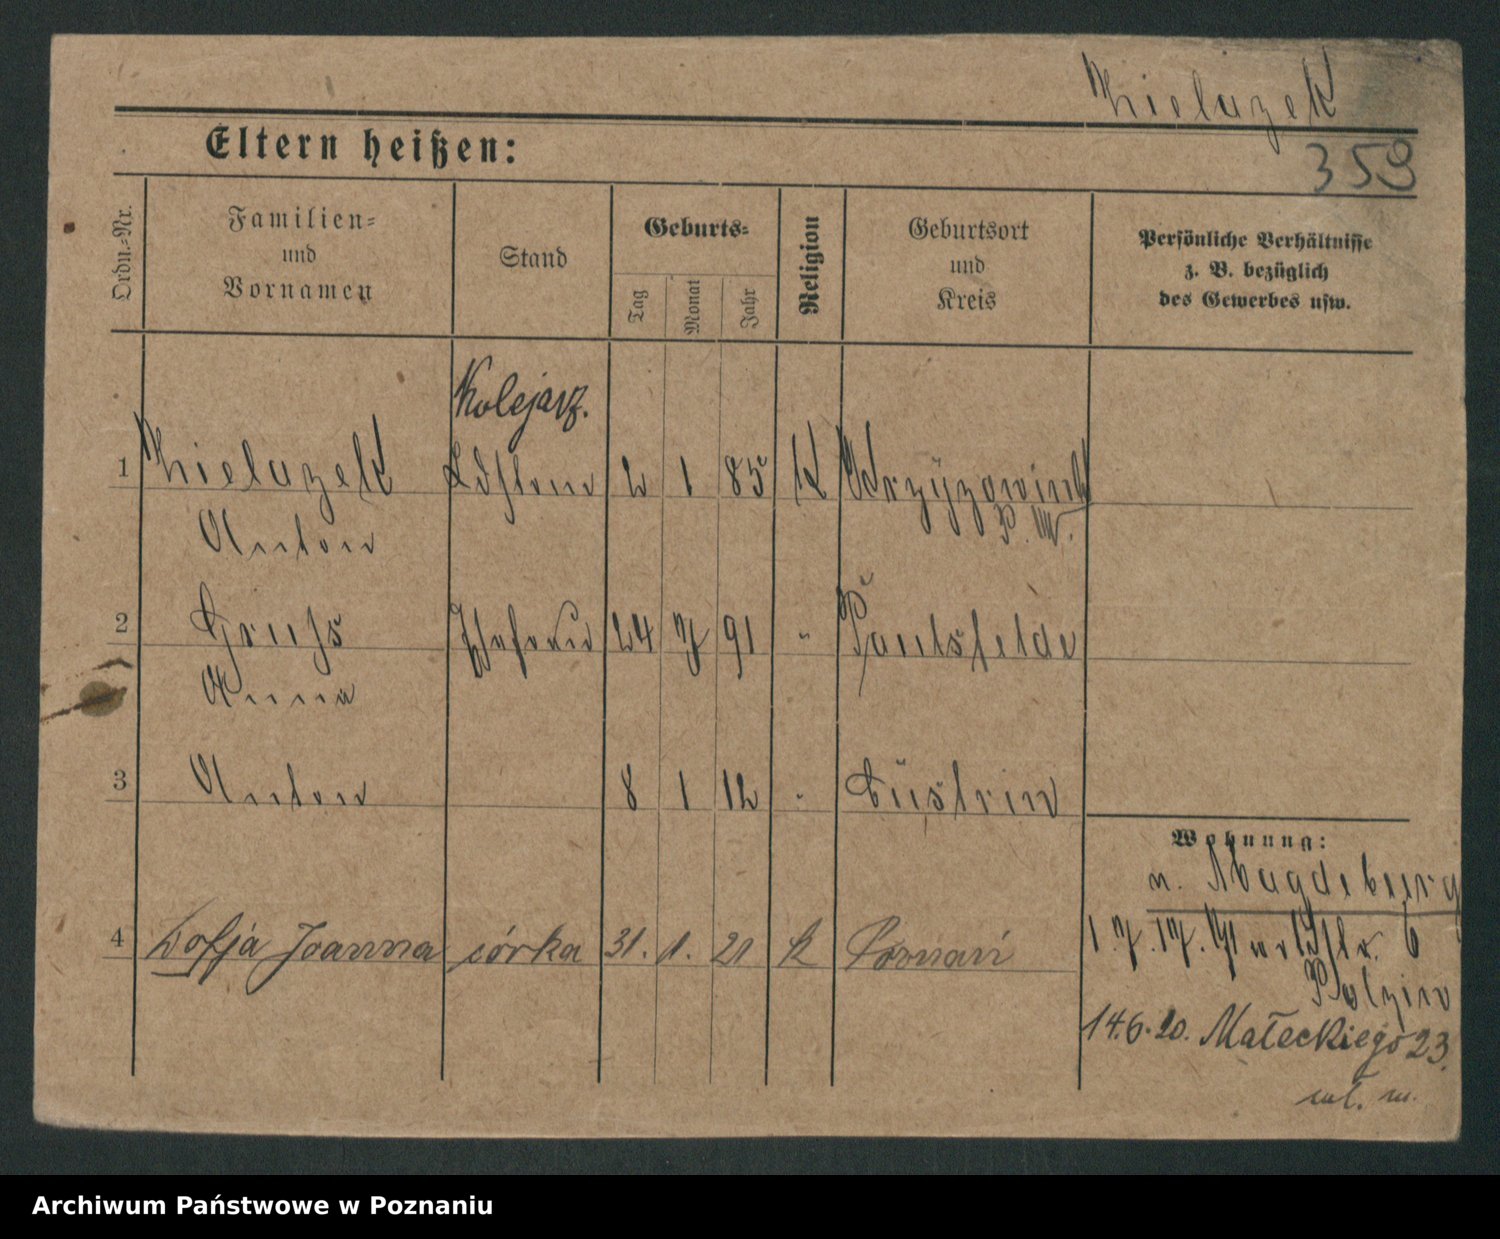 Kielazek
359
Eltern heißen:
Ordn.-Nr.
Familien-
und
Vornamen
Stand
Geburts-
Tag
Monat
Jahr
Religion
Geburtsort
und
Kreis
Persönliche Verhältnisse
z. B. bezüglich
des Gewerbes usw.
Kolejarz.
1 2 1 85 K
Anton P. W.
2 24 7 91 "
Anna
3 Anton 8 1 12 " Cüstrin
Wohnung:
n. Magdeburg
4 Zofja Joanna córka 31. 1. 21 k Poznań
1.7.17. 6
Polzin
14.6.20. Małeckiego 23.